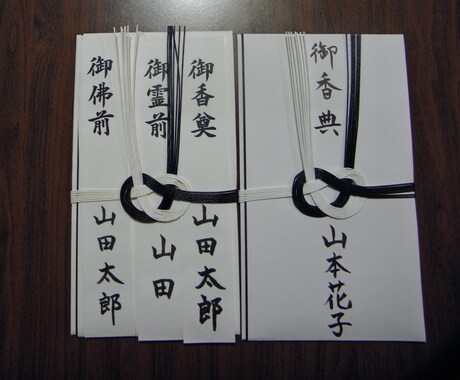 御香典
山本花子
御香奠
山田太郎
御霊前
山田
御佛前
山田太郎